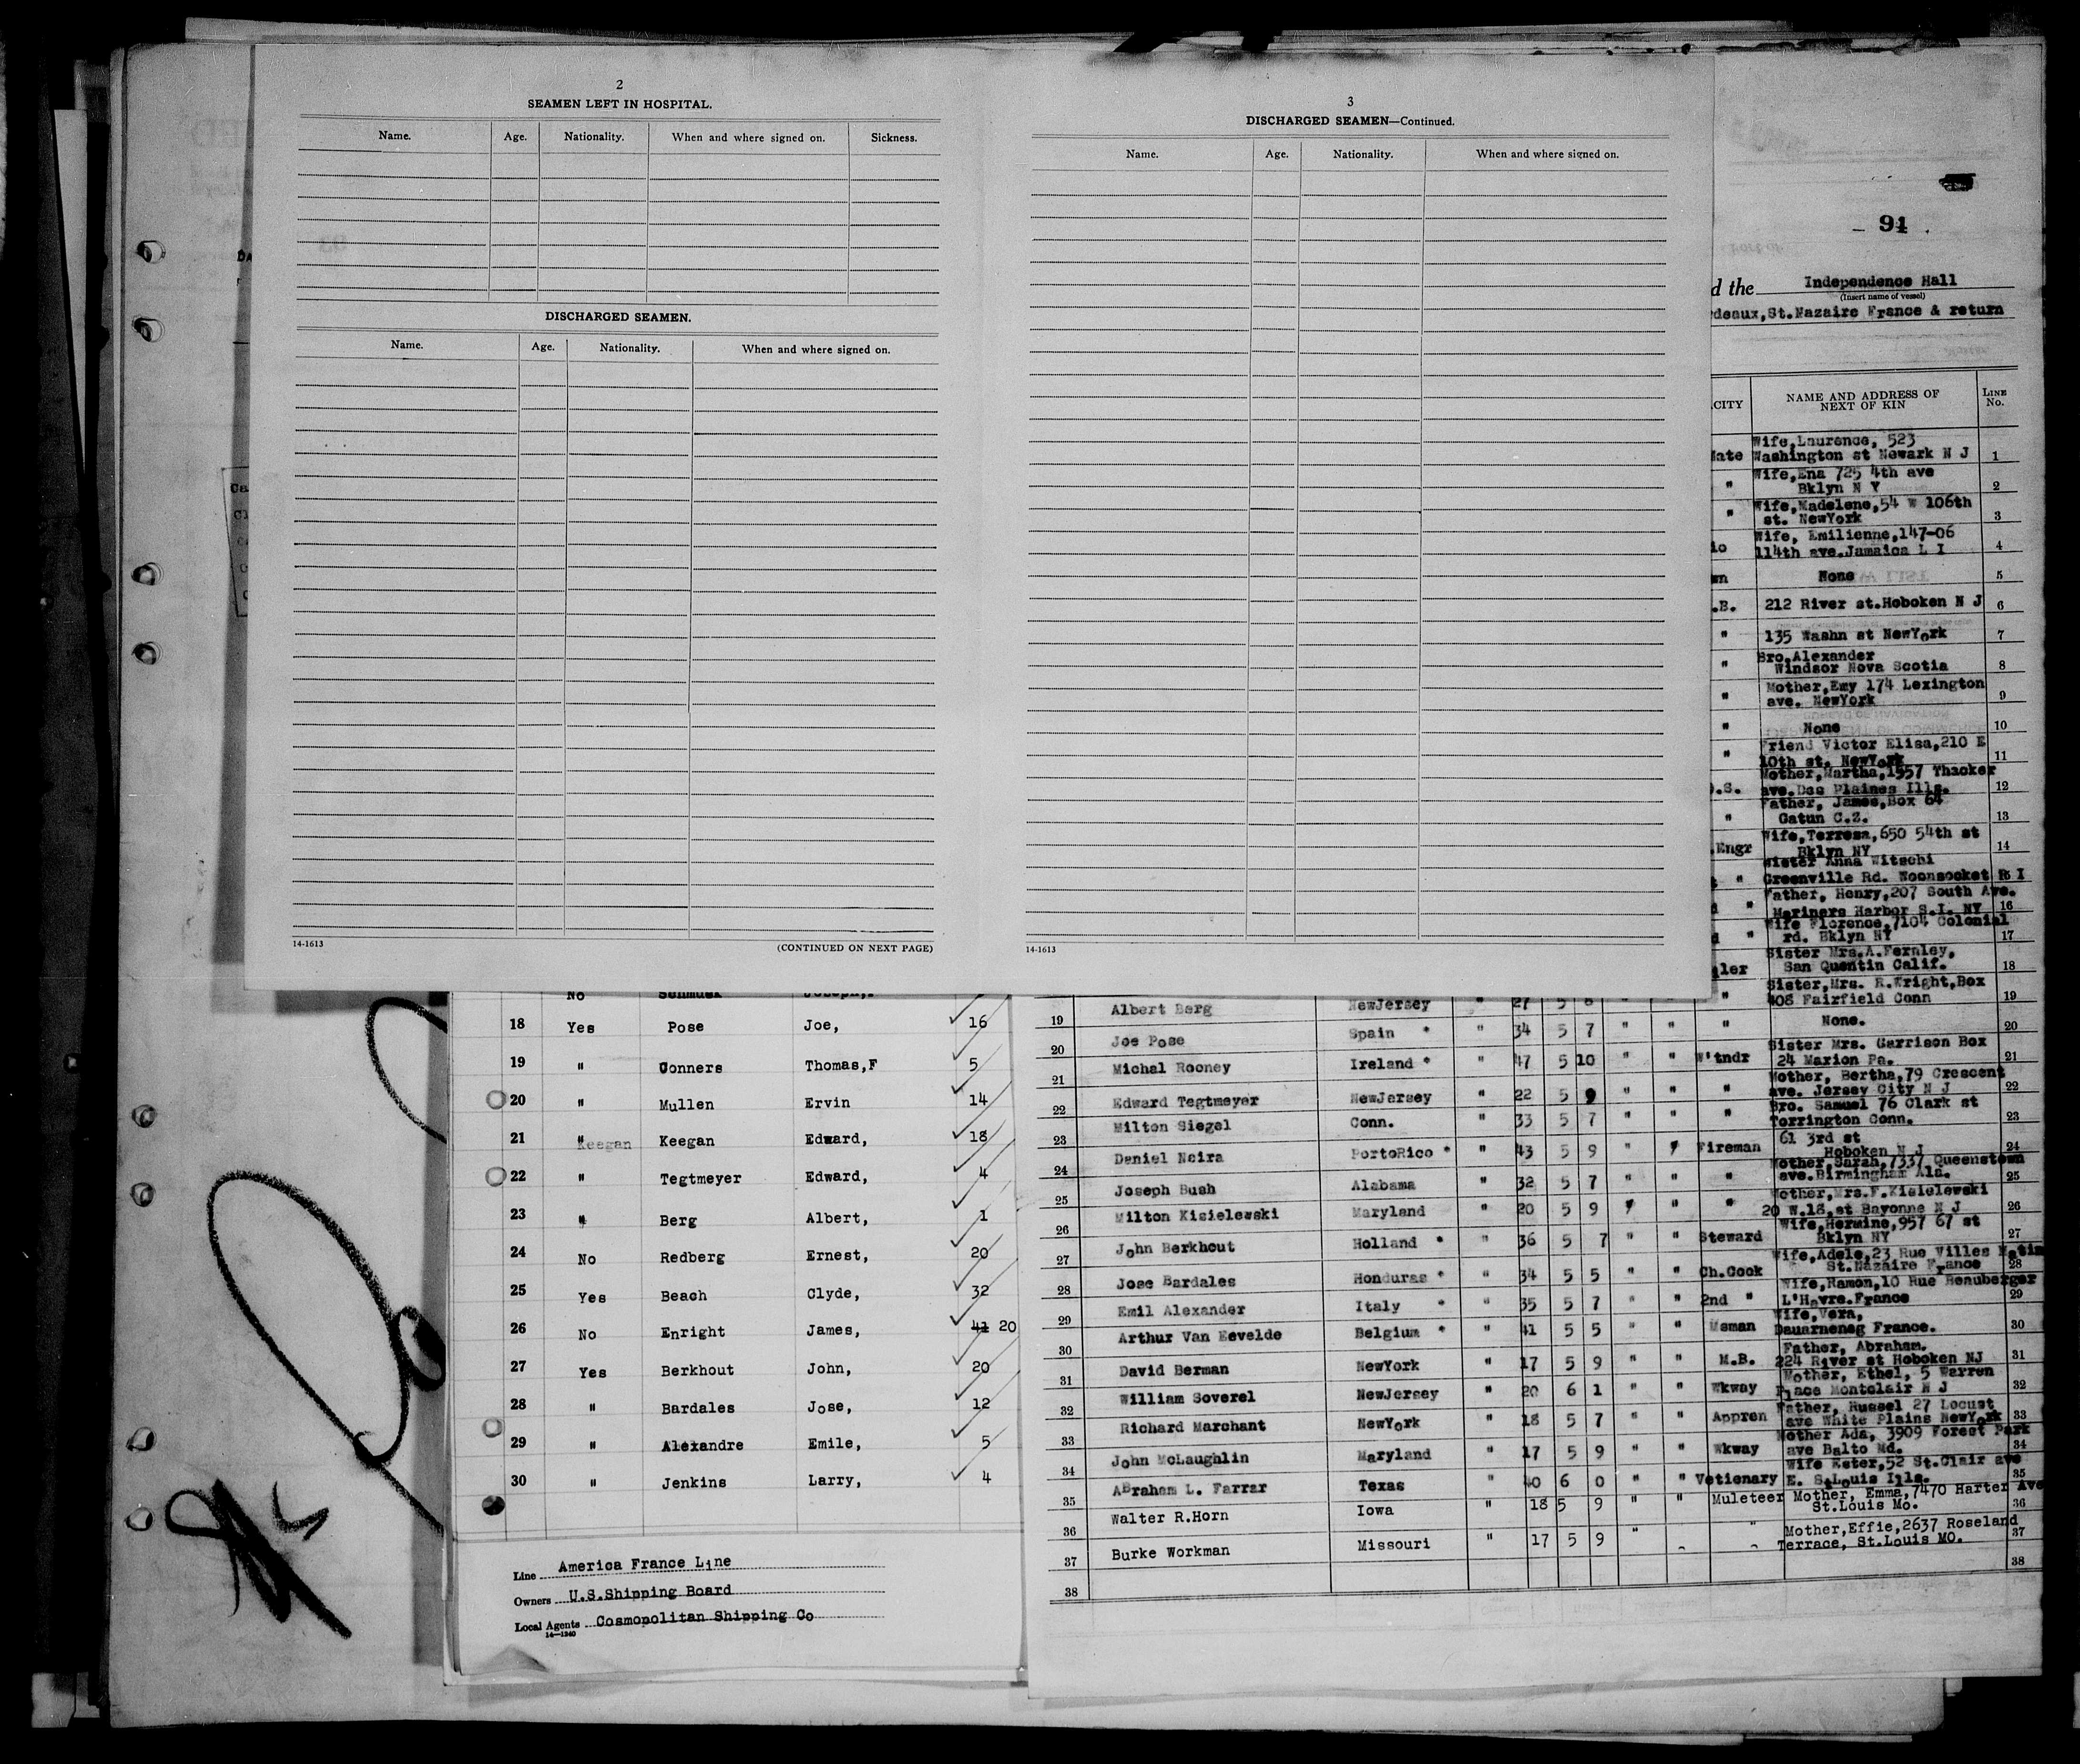 2
SEAMEN LEFT IN HOSPITAL.
Name. Age. Nationality. When and where signed on. Sickness.
DISCHARGED SEAMEN.
Name. Age. Nationality. When and where signed on.
14-1613 (CONTINUED ON NEXT PAGE)
3
DISCHARGED SEAMEN—Continued.
Name. Age. Nationality. When and where signed on.
14-1613
91
d the Independence Hall
(Insert name of vessel)
rdeaux,St.Nazaire France & return
CITY NAME AND ADDRESS OF NEXT OF KIN LINE No.
Mate Wife,Laurence, 523
Washington st Newark N J 1
" Wife,Ena 725 4th ave
Bklyn N Y 2
" Wife,Madelene,54 W 106th
st. NewYork 3
io Wife, Emilienne,147-06
114th ave.Jamaica L I 4
None 5
.B. 212 River st.Hoboken N J 6
" 135 Washn st NewYork 7
" Bro.Alexander
Windsor Nova Scotia 8
" Mother,Emy 174 Lexington
ave. NewYork 9
" None 10
" Friend Victor Elisa,210 E
10th st. NewYork 11
.S. Mother,Martha,1557 Thacker
ave.Des Plaines Ills. 12
" Father, James,Box 64
Gatun C.Z. 13
.Engr Wife,Terresa,650 54th st
Bklyn NY 14
" Sister Anna Witschi
Greenville Rd. Woonsocket R I
" Father, Henry,207 South Ave.
Mariners Harbor S.I. NY 16
" Wife Florence,7104 Colonial
rd. Bklyn NY 17
ler Sister Mrs.A.Fernley,
San Quentin Calif. 18
" Sister,Mrs. R.Wright,Box
408 Fairfield Conn 19
No Schmuck
18 Yes Pose Joe, 16
19 " Conners Thomas,F 5
20 " Mullen Ervin 14
21 " Keegan Keegan Edward, 18
22 " Tegtmeyer Edward, 4
23 " Berg Albert, 1
24 No Redberg Ernest, 20
25 Yes Beach Clyde, 32
26 No Enright James, 41 20
27 Yes Berkhout John, 20
28 " Bardales Jose, 12
29 " Alexandre Emile, 5
30 " Jenkins Larry, 4
Line America France Line
Owners U.S.Shipping Board
Local Agents Cosmopolitan Shipping Co
14-1240
19 Albert Berg NewJersey " 27 5 8
20 Joe Pose Spain * " 34 5 7 " " " None. 20
21 Michal Rooney Ireland * " 47 5 10 " " W'tndr Sister Mrs. Garrison Box
24 Marion Pa. 21
22 Edward Tegtmeyer NewJersey " 22 5 9 " " " Mother, Bertha,79 Crescent
ave. Jersey City N J 22
23 Milton Siegel Conn. " 33 5 7 " " " Bro. Samuel 76 Clark st
Torrington Conn. 23
24 Daniel Neira PortoRico * " 43 5 9 " " Fireman 61 3rd st
Hoboken N J 24
25 Joseph Bush Alabama " 32 5 7 " " " Mother,Sarah,7337 Queenstown
ave.Birmingham Ala. 25
26 Milton Kisielewski Maryland " 20 5 9 " " " Mother,Mrs.F.Kisielewski
20 W.18,st Bayonne N J 26
27 John Berkhout Holland * " 36 5 7 " " Steward Wife,Hermine,957 67 st
Bklyn NY 27
28 Jose Bardales Honduras * " 34 5 5 " " Ch.Cook Wife,Adele,23 Rue Villes
St.Nazaire France 28
29 Emil Alexander Italy * " 35 5 7 " " 2nd " Wife,Ramon,10 Rue Beauberger
L'Havre.France 29
30 Arthur Van Eevelde Belgium * " 41 5 5 " " Msman Wife,Vera,
Dauarneneg France. 30
31 David Berman NewYork " 17 5 9 " " M.B. Father, Abraham.
224 River st Hoboken NJ 31
32 William Soverel NewJersey " 20 6 1 " " Wkway Mother, Ethel, 5 Warren
Place Montclair N J 32
33 Richard Marchant NewYork " 18 5 7 " " Appren Father, Russel 27 Locust
ave White Plains NewYork 33
34 John McLaughlin Maryland " 17 5 9 " " Wkway Mother Ada, 3909 Forest Park
ave Balto Md. 34
35 Abraham L. Farrar Texas " 40 6 0 " " Vetienary Wife Ester,52 St.Clair ave
E. St.Louis Ills. 35
36 Walter R.Horn Iowa " 18 5 9 " " Muleteer Mother, Emma,7470 Harter Ave
St.Louis Mo. 36
37 Burke Workman Missouri " 17 5 9 " " " Mother,Effie,2637 Roseland
Terrace, St.Louis MO. 37
38 38